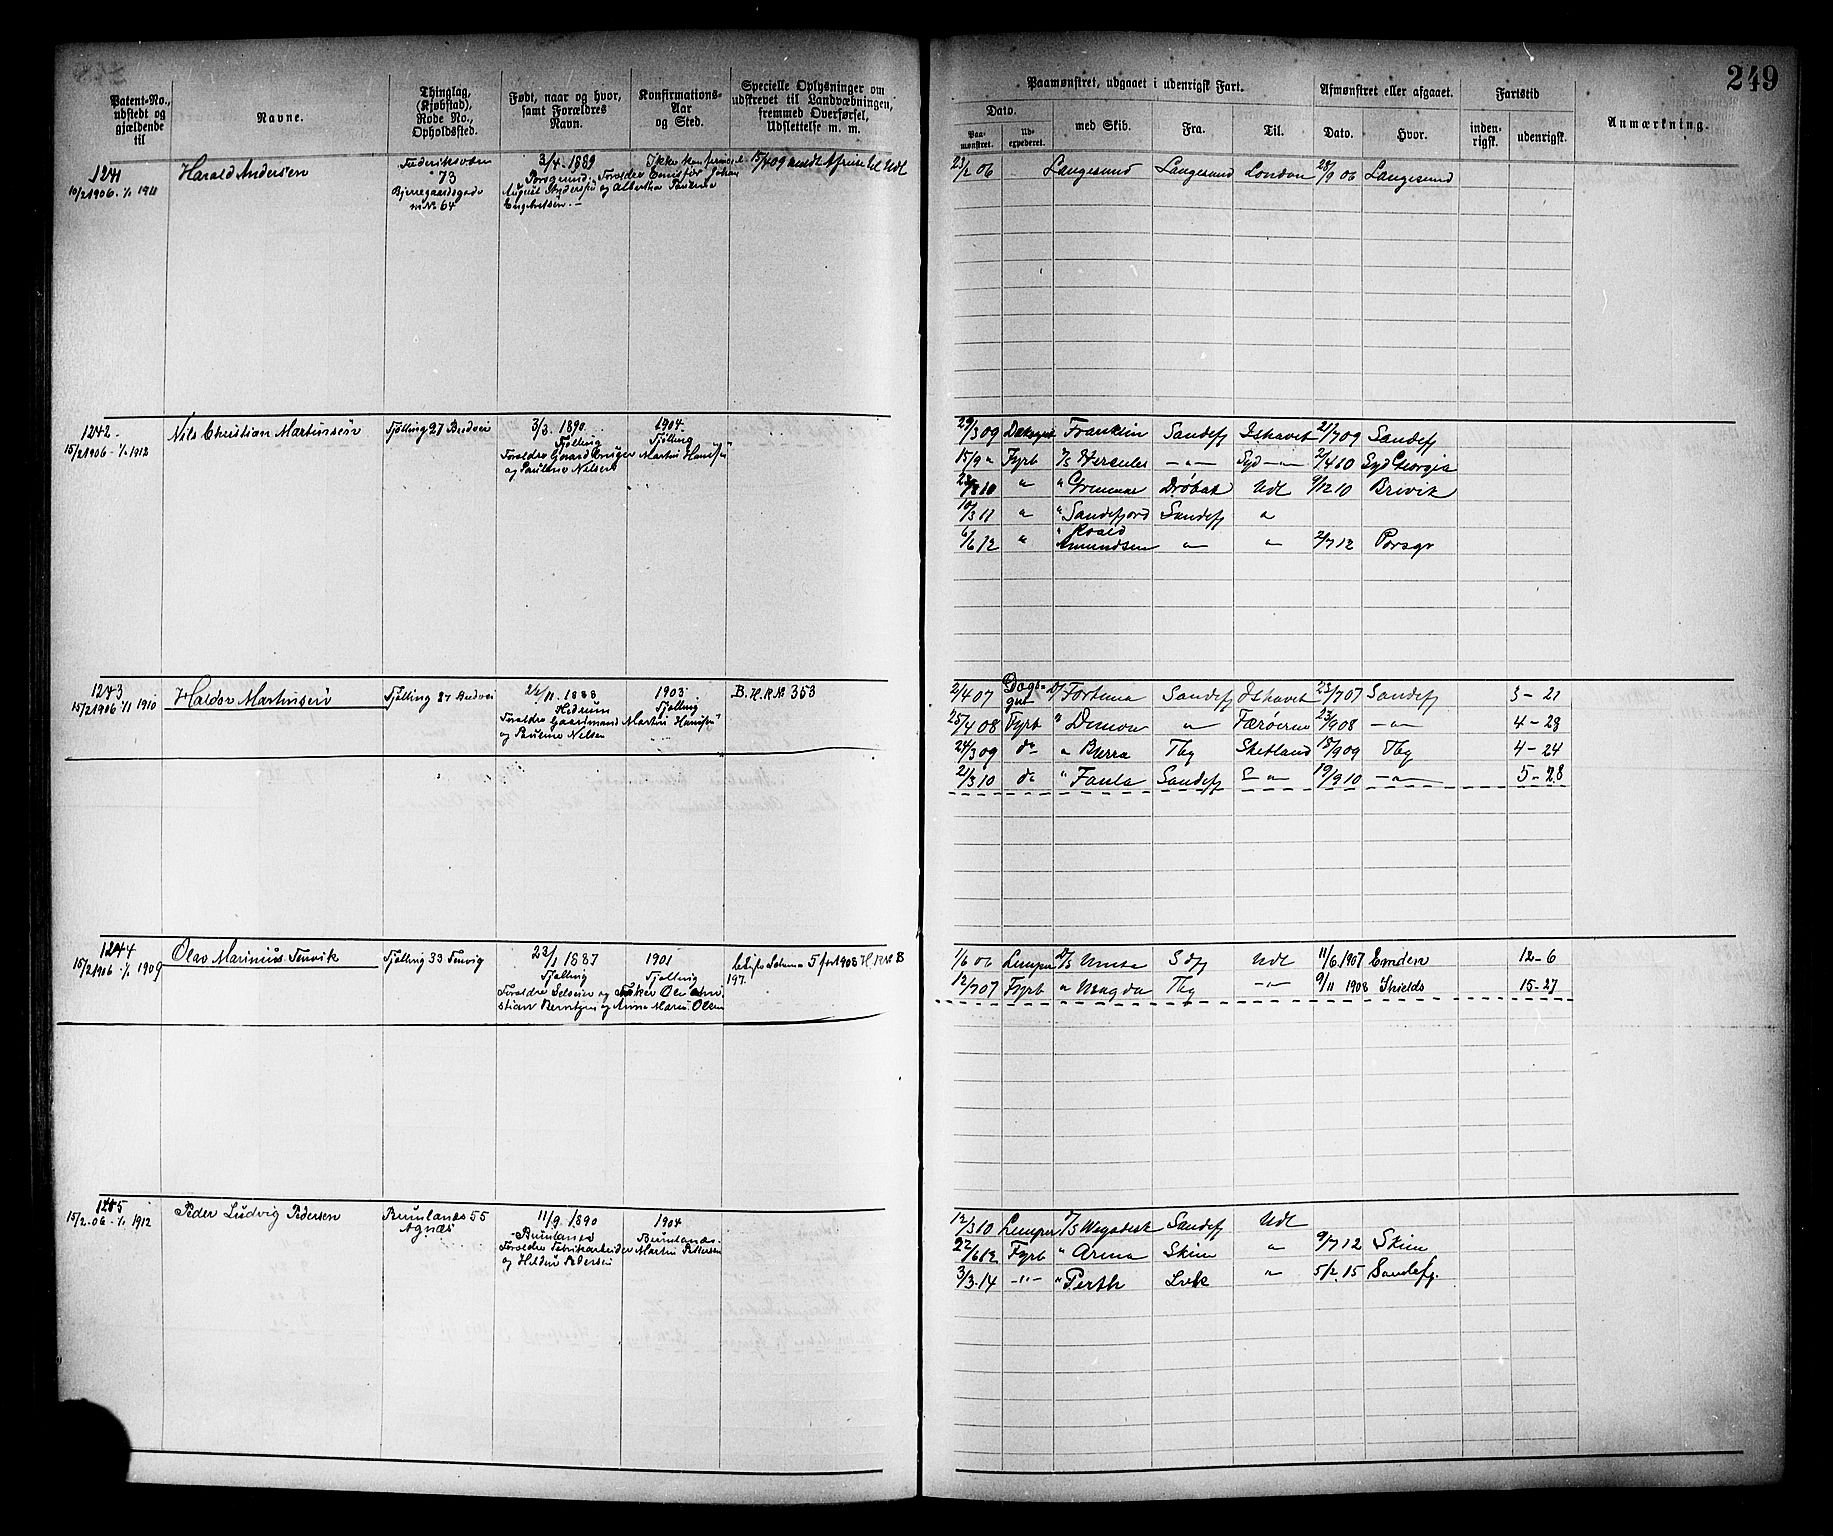 249
Patent-No., udstedt og gjældende til
Navne.
Thinglag, (Kjøbstad), Rode No., Opholdssted.
Født, naar og hvor, samt Forældres Navn.
Konfirmations-Aar og Sted.
Specielle Oplysninger om udskrevet til Landværningen, fremmed Overførsel, Udslettelse m. m.
Paamønstret, udgaaet i udenrigsk Fart.
Dato.
Paa-mønstret.
Ud-expederet.
med Skib.
Fra.
Til.
Afmønstret eller afgaaet.
Dato.
Hvor.
Fartstid
inden-rigsk.
udenrigsk.
Anmærkning.
1241
10/2 1906 - 1/1 1911
Harald Andersen
Frederiksværn
73
Bjerregaardsgade
m No 64
3/4 - 1889
Porsgrund. Forældre
August Andersen og Albertha Paulence
Engebretsen. -
Ikke
15/4 09
23/2 06 Langesund Langesund London 28/9 06 Langesund
1242
15/2 1906 - 1/1 1912
Nils Christian Martinsen
Tjølling 27
3/3 1890
Tjølling
Forældre Gaardbruger Martin Hansen
og Pauline Nilsen
1904
Tjølling
29/3 09 Franklin Sandefj Ishavet 21/7 09 Sandefj
15/9 " Fyrb D/S Hercules -"- Syd -"- 2/4 10 Syd Georgia
10 " " Drøbak Udl 9/12 10 Brevik
10/3 11 " " Sandefjord Sandefj "
6/6 12 " " Roald Amundsen -"- -"- 2/7 12 Porsgr
1243
15/2 1906 1/1 1910
Haldor Martinsen
Tjølling 27
1888
Hedrum
Forældre Gaardmand Martin Hansen
og Pauline Nilsen
1903
Tjølling
B. H. R No 353
2/4 07 Dags-gut D/S Fortuna Sandefj Ishavet 23/7 07 Sandefj 3 - 21
25/4 08 Fyrb " " Færøerne 23/9 08 -"- 4 - 28
24/3 09 do " Burra Tbg Shetland 18/9 09 Tbg 4 - 24
21/3 10 do " Foula Sandefj S -"- 19/9 10 -"- 5 - 28
1244
15/2 1906 - 1/1 1909
Olav Marinius Tenvik
Tjølling 33 Tenvig
23/1 1887
Tjølling
Forældre Selveier og Fisker Ole Chri-
stian Berntsen og Anna Maria Olsen
1901
Tjølling
H. R No B
197.
1/6 06 Lemper D/S Unita Sdfj Udl 11/6 1907 Emden 12 - 6
12/7 07 Fyrb " Magda Tbg -"- 9/11 1908 Shields 15 - 27
1245
15/2 - 06 - 1/1 1912
Peder Ludvig Pedersen
Brunlanes 55
Agnæs
11/9 1890
Brunlanes
Forældre Fabrikarbeider Martin Pettersen
og Helene Pedersen
1904
Brunlanes.
12/3 10 Lemper D/S Sandefj Udl
22/6 12 Fyrb " Arma Skien " 9/7 12 Skien
3/3. 14 -"- " Perth Lvik " 5/2. 15 Sandefj.